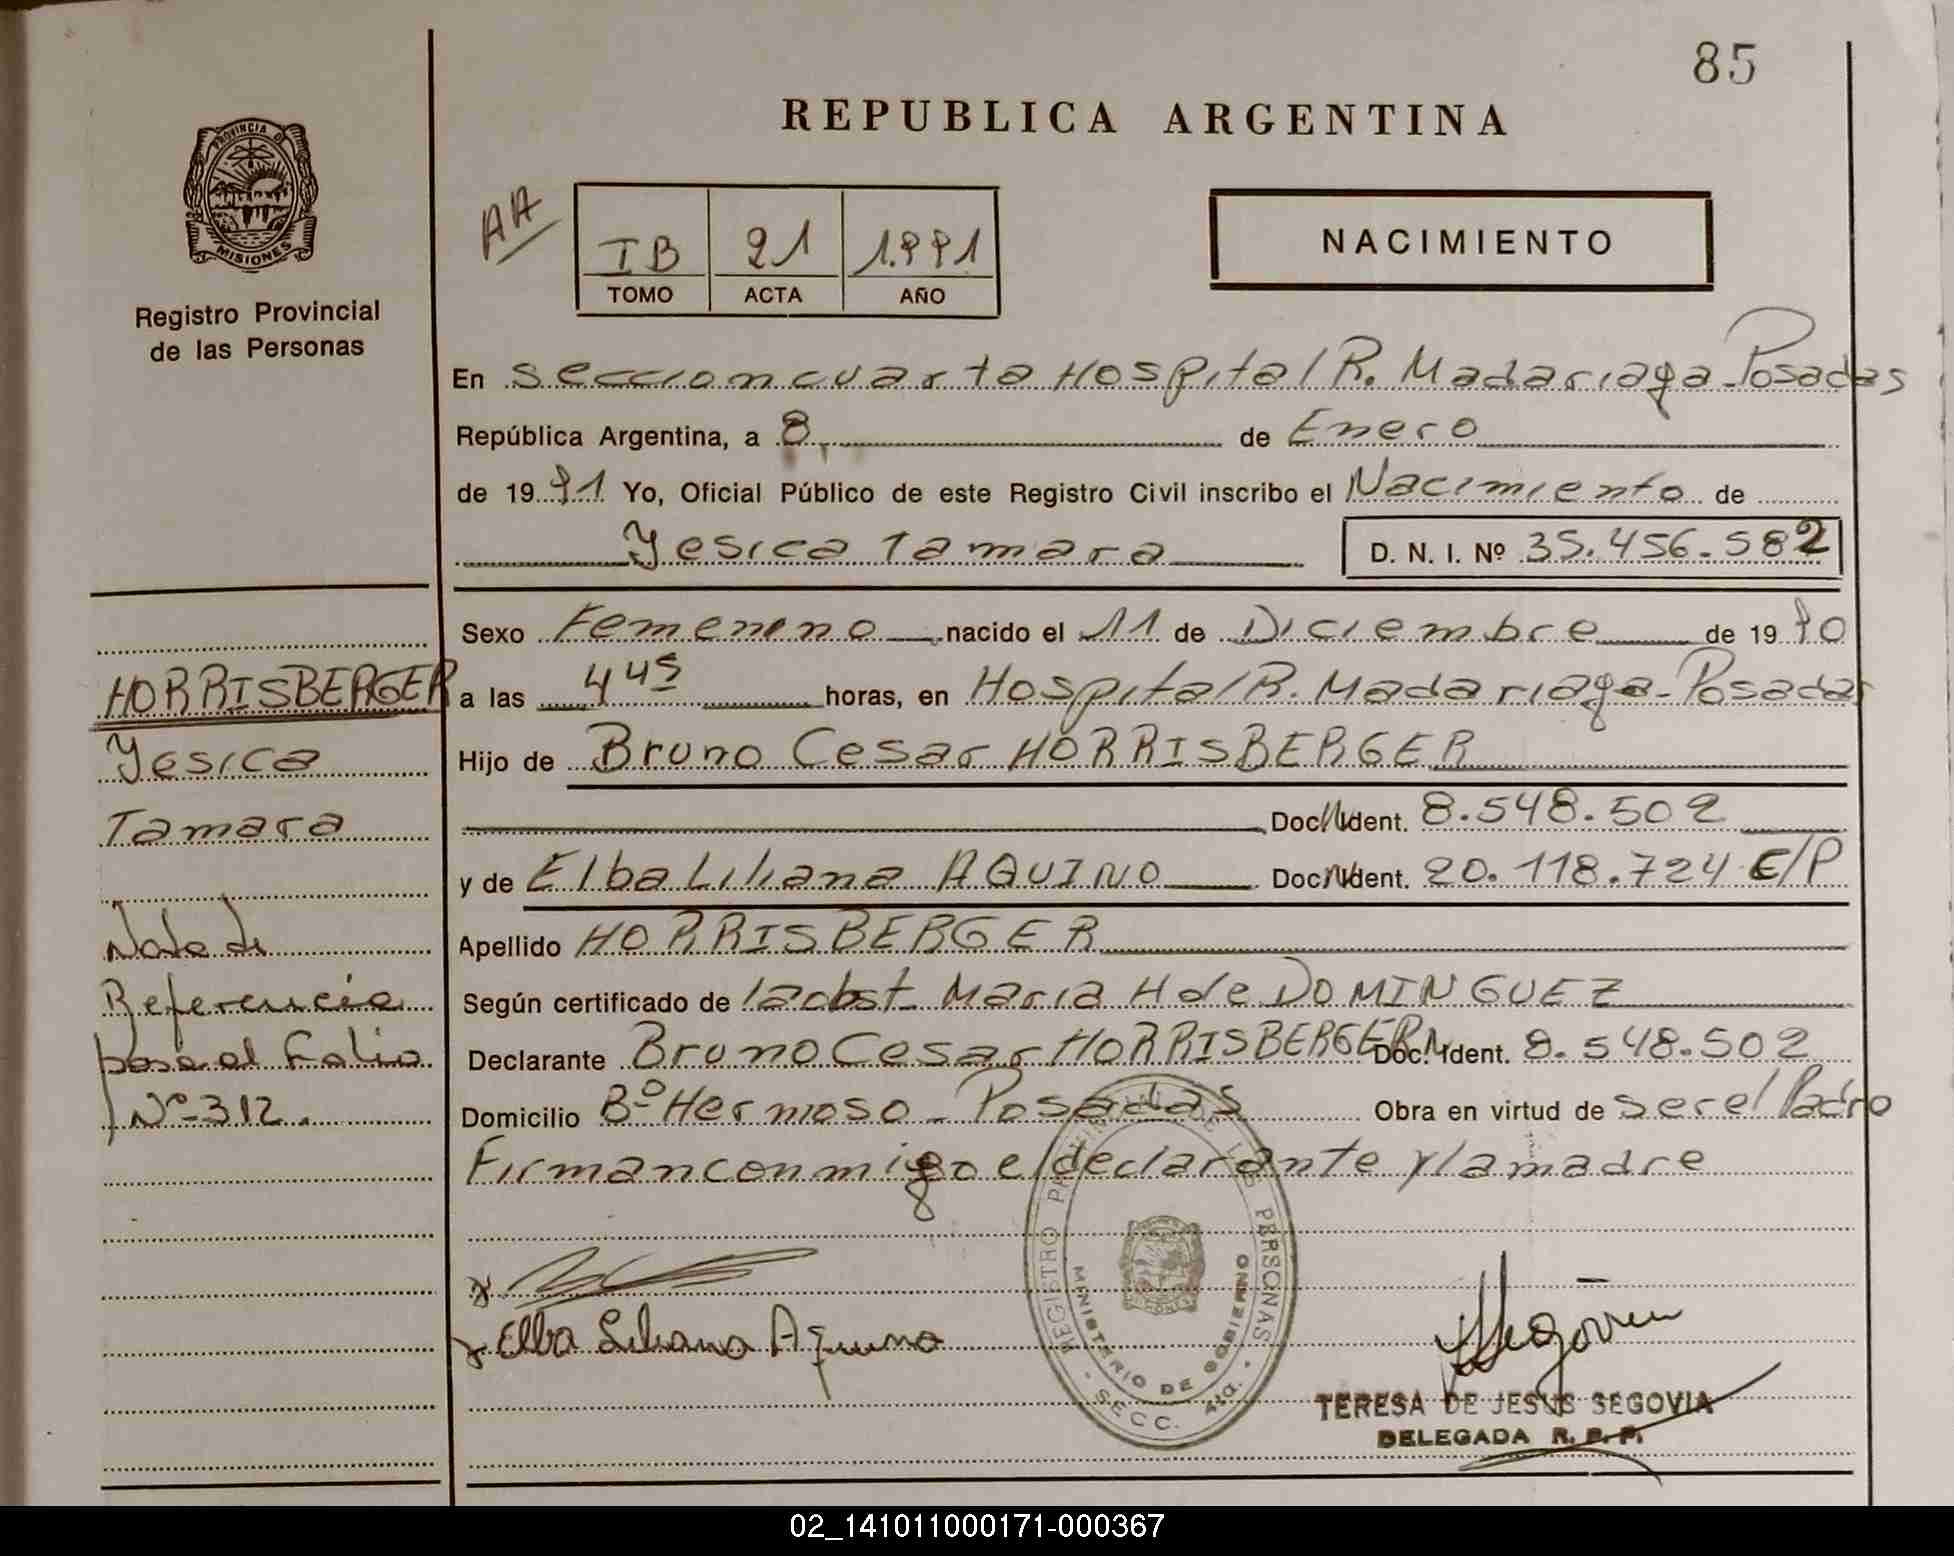 85
REPUBLICA ARGENTINA
PROVINCIA DE
MISIONES
Registro Provincial
de las Personas
AA
IB 21 1.991
TOMO ACTA AÑO
NACIMIENTO
En Seccion cuarta Hospital R. Madariaga - Posadas
República Argentina, a 8 de Enero
de 1991 Yo, Oficial Público de este Registro Civil inscribo el Nacimiento de
Yesica Tamara D. N. I. Nº 35.456.582
Sexo Femenino nacido el 11 de Diciembre de 1990
a las 4 45 horas, en Hospital R. Madariaga - Posadas
Hijo de Bruno Cesar HORRISBERGER
Doc. Ident. 8.548.502
y de Elba Liliana AQUINO Doc. Ident. 20.118.724 E/P
Apellido HORRISBERGER
Según certificado de la obst. Maria H de DOMINGUEZ
Declarante Bruno Cesar HORRISBERGER Doc. Ident. 8.548.502
Domicilio Bº Hermoso - Posadas Obra en virtud de ser el Padre
Firman conmigo el declarante y la madre
HORRISBERGER
Yesica
Tamara
Nota de
Referencia
pase al Folio
Nº 312.
Elba Liliana Aquino
REGISTRO PROVINCIAL DE LAS PERSONAS
MINISTERIO DE GOBIERNO
SECC. 4ta.
Segovia
TERESA DE JESUS SEGOVIA
DELEGADA R. P. P.
02_141011000171-000367